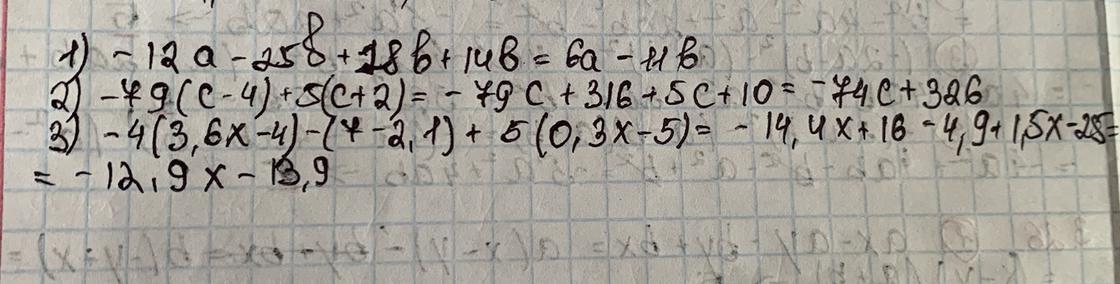 1) -12a - 25b + 18b + 14b = 6a - 11b
2) -79(c-4)+5(c+2) = -79c + 316 + 5c + 10 = -74c + 326
3) -4(3,6x-4)-(7-2,1) + 5(0,3x-5) = -14,4x + 16 - 4,9 + 1,5x - 25 =
= -12,9x - 13,9